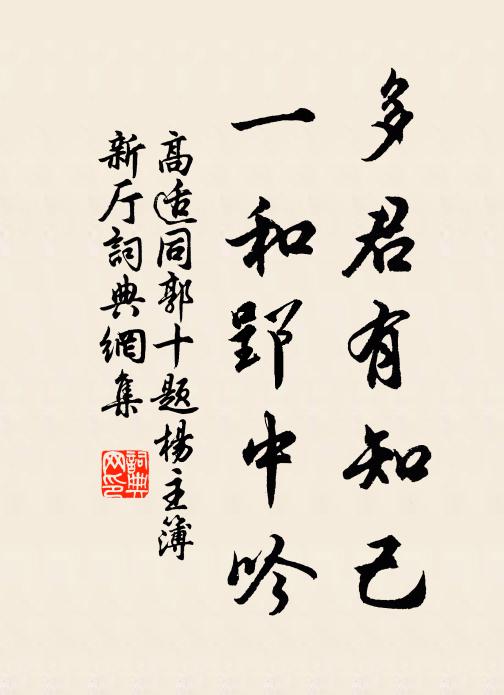 多君有知己
一和郢中吟
高适同郭十题楊主簿
新厅詞典網集
詞典
网印